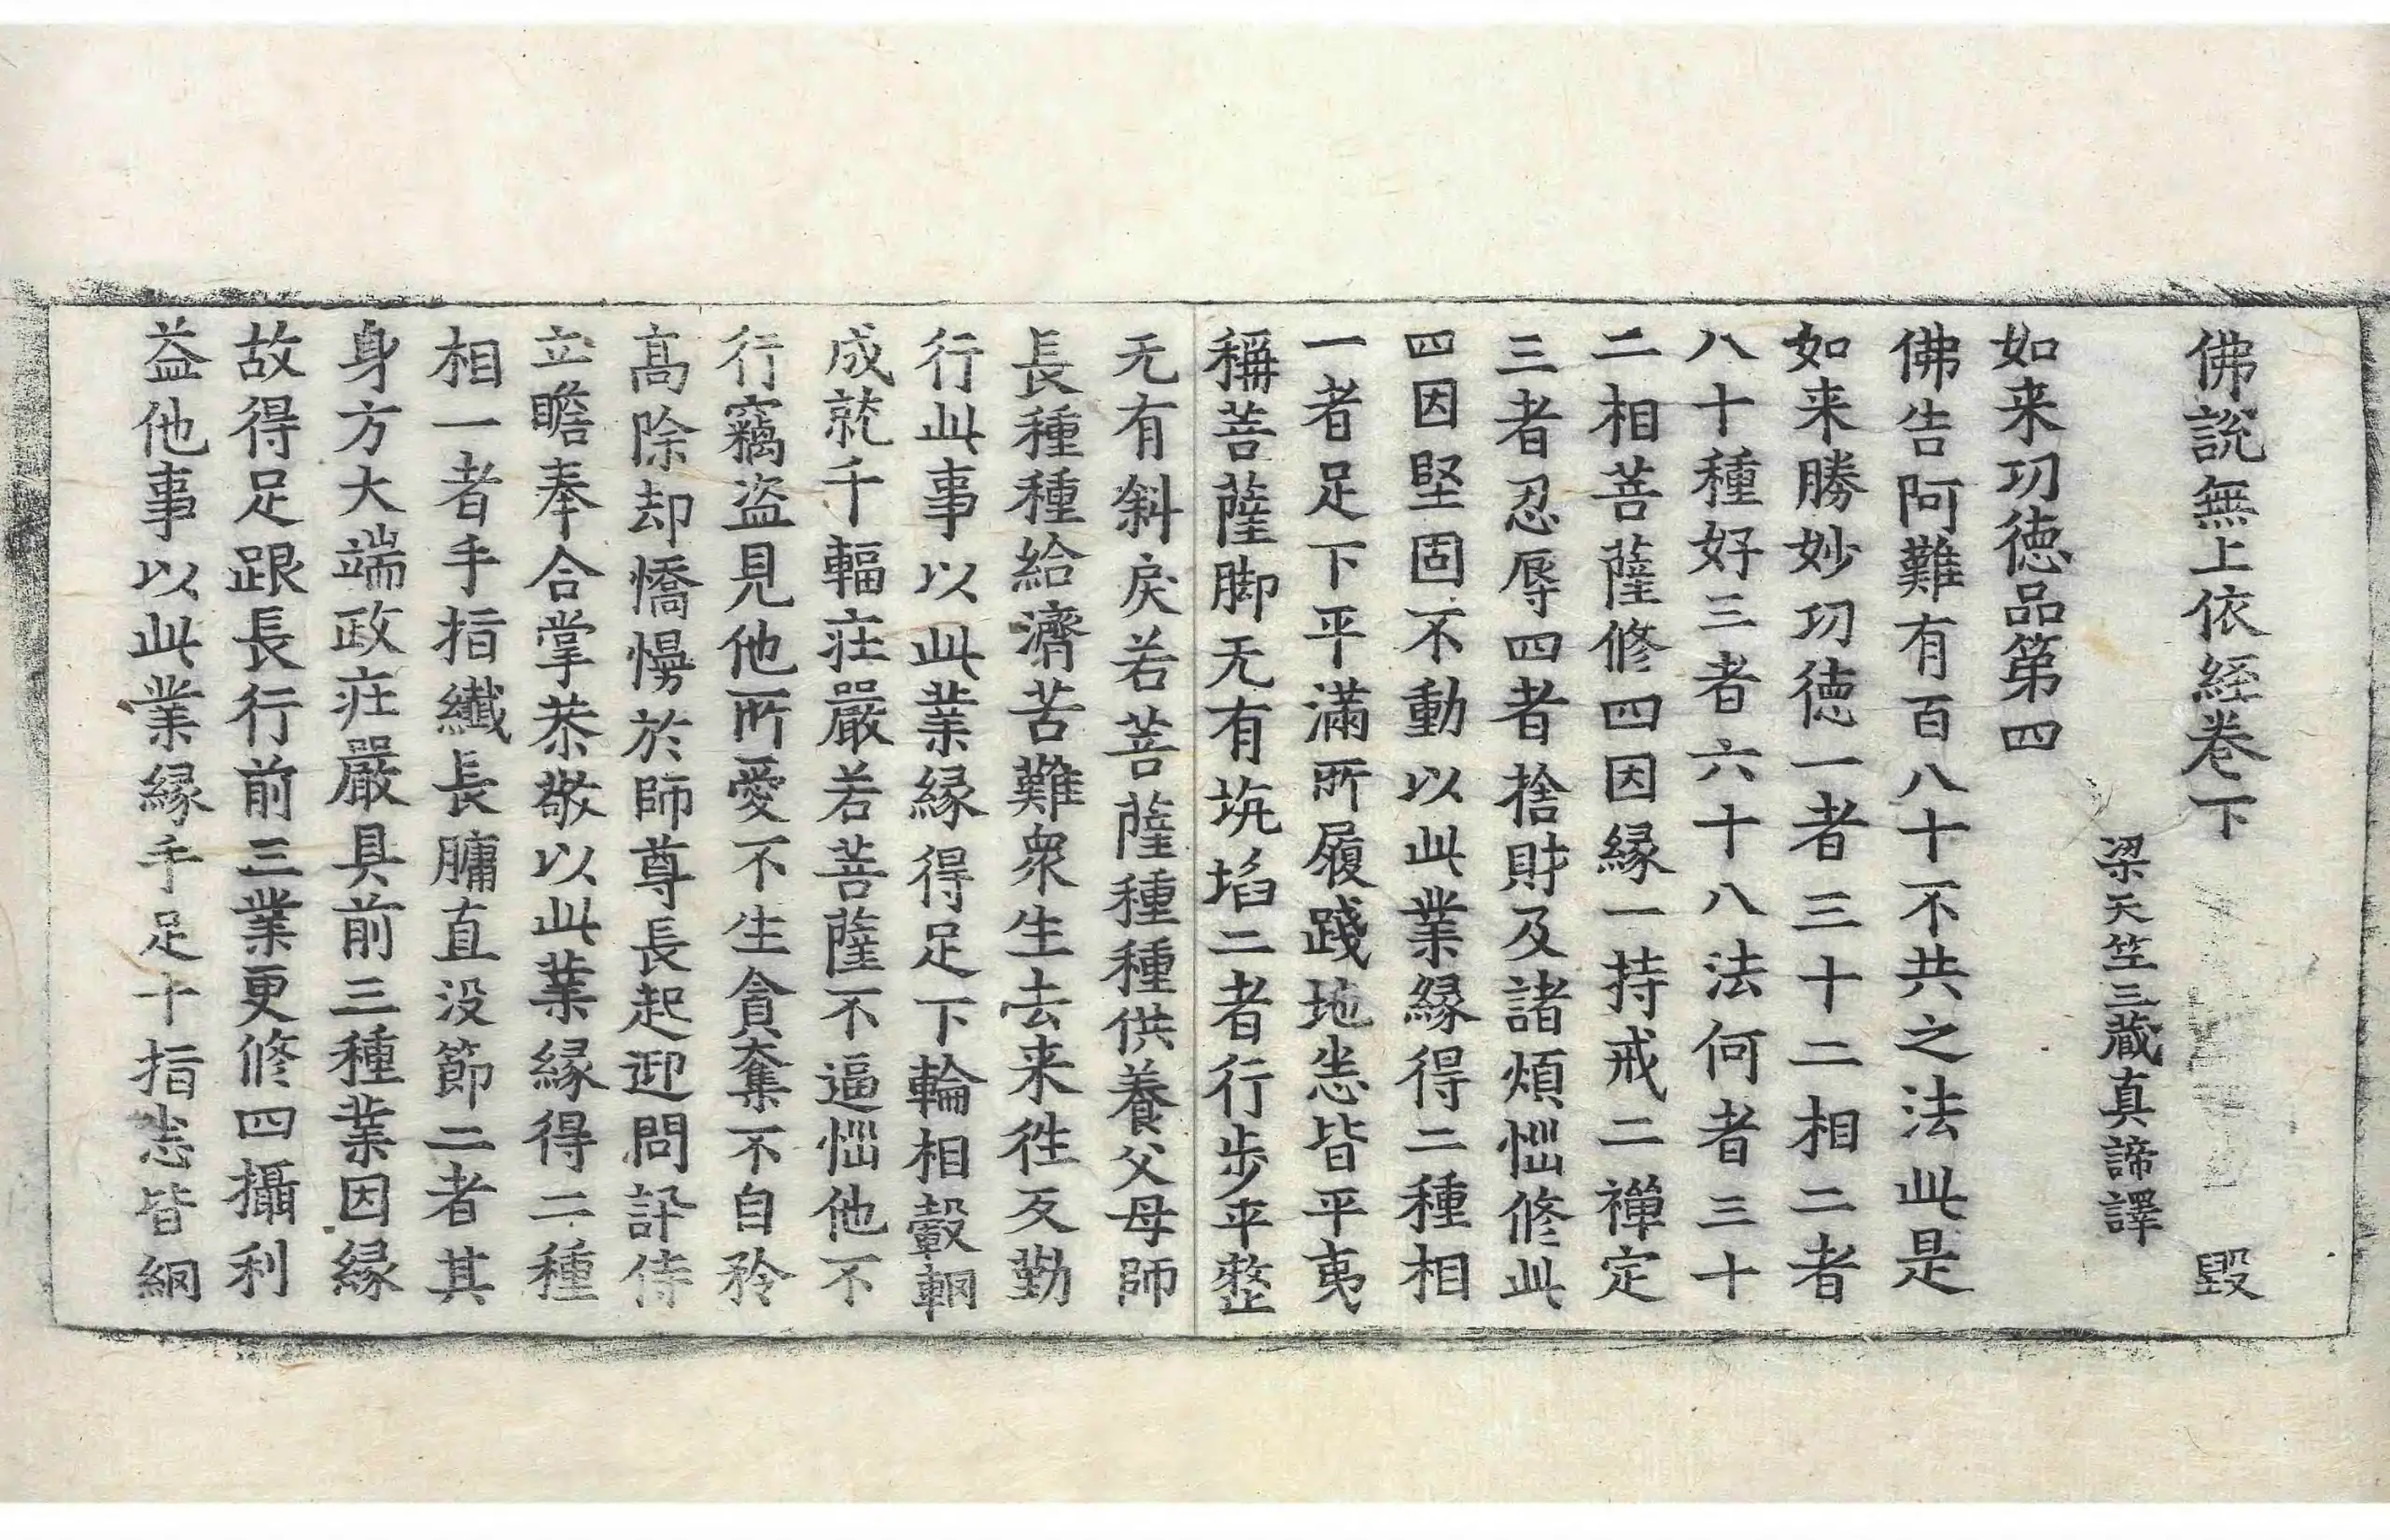 佛說無上依經卷下 毀
梁天竺三藏真諦譯
如来功德品第四
佛告阿難有百八十不共之法此是
如来勝妙功德一者三十二相二者
八十種好三者六十八法何者三十
二相菩薩修四因緣一持戒二禪定
三者忍辱四者捨財及諸煩惱修此
四因堅固不動以此業緣得二種相
一者足下平滿所履踐地悉皆平夷
稱菩薩脚无有坑埳二者行步平整
无有斜戾若菩薩種種供養父母師
長種種給濟苦難衆生去来往反勤
行此事以此業緣得足下輪相轂輞
成就千輻莊嚴若菩薩不逼惱他不
行竊盜見他所愛不生貪奪不自矜
高除却憍慢於師尊長起迎問訊侍
立瞻奉合掌恭敬以此業緣得二種
相一者手指纖長𦟛直没節二者其
身方大端政莊嚴具前三種業因緣
故得足跟長行前三業更修四攝利
益他事以此業緣手足十指悉皆網